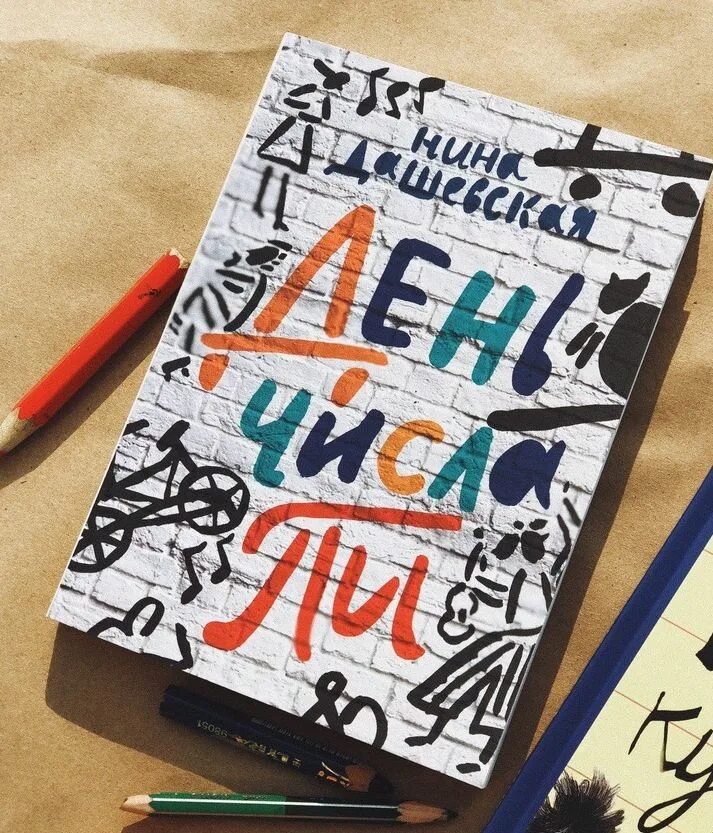 нина
Дашевская
День
числа
Пи
98051
Ку